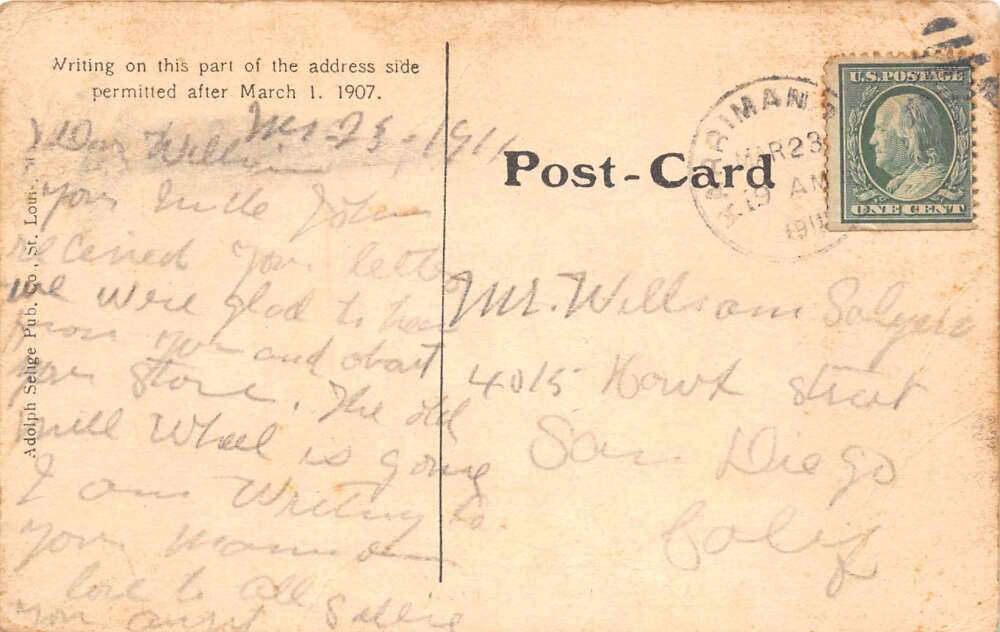 Writing on this part of the address side
permitted after March 1. 1907.
23, 1911
Dear Willie
your Uncle John
received your letter
we were glad to hear
from you and about
your Store. The old
mill Wheel is going
I am Writing to
your Mamma
love to all
your aunt Sallie
Adolph Selige Pub. Co., St. Louis
Post-Card
HARRIMAN
MAR 23
19 AM
1911
U.S. POSTAGE
ONE CENT
Mr. William
4015 street
San Diego
Calif